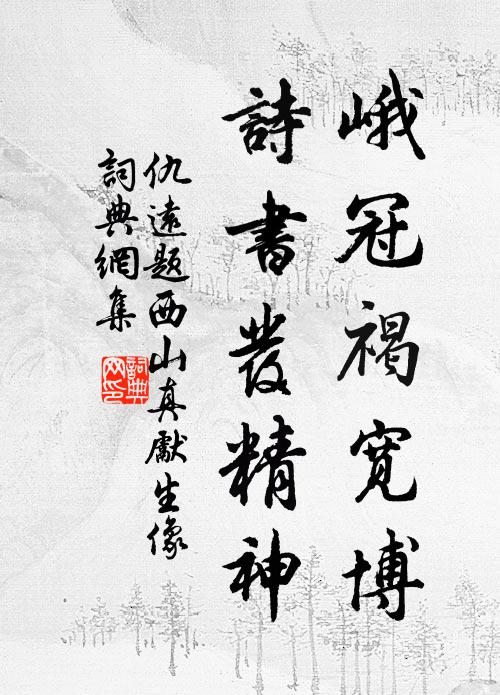 峨冠褐寛博
詩書發精神
仇遠題西山真獻生像
詞典網集
詞典
网印